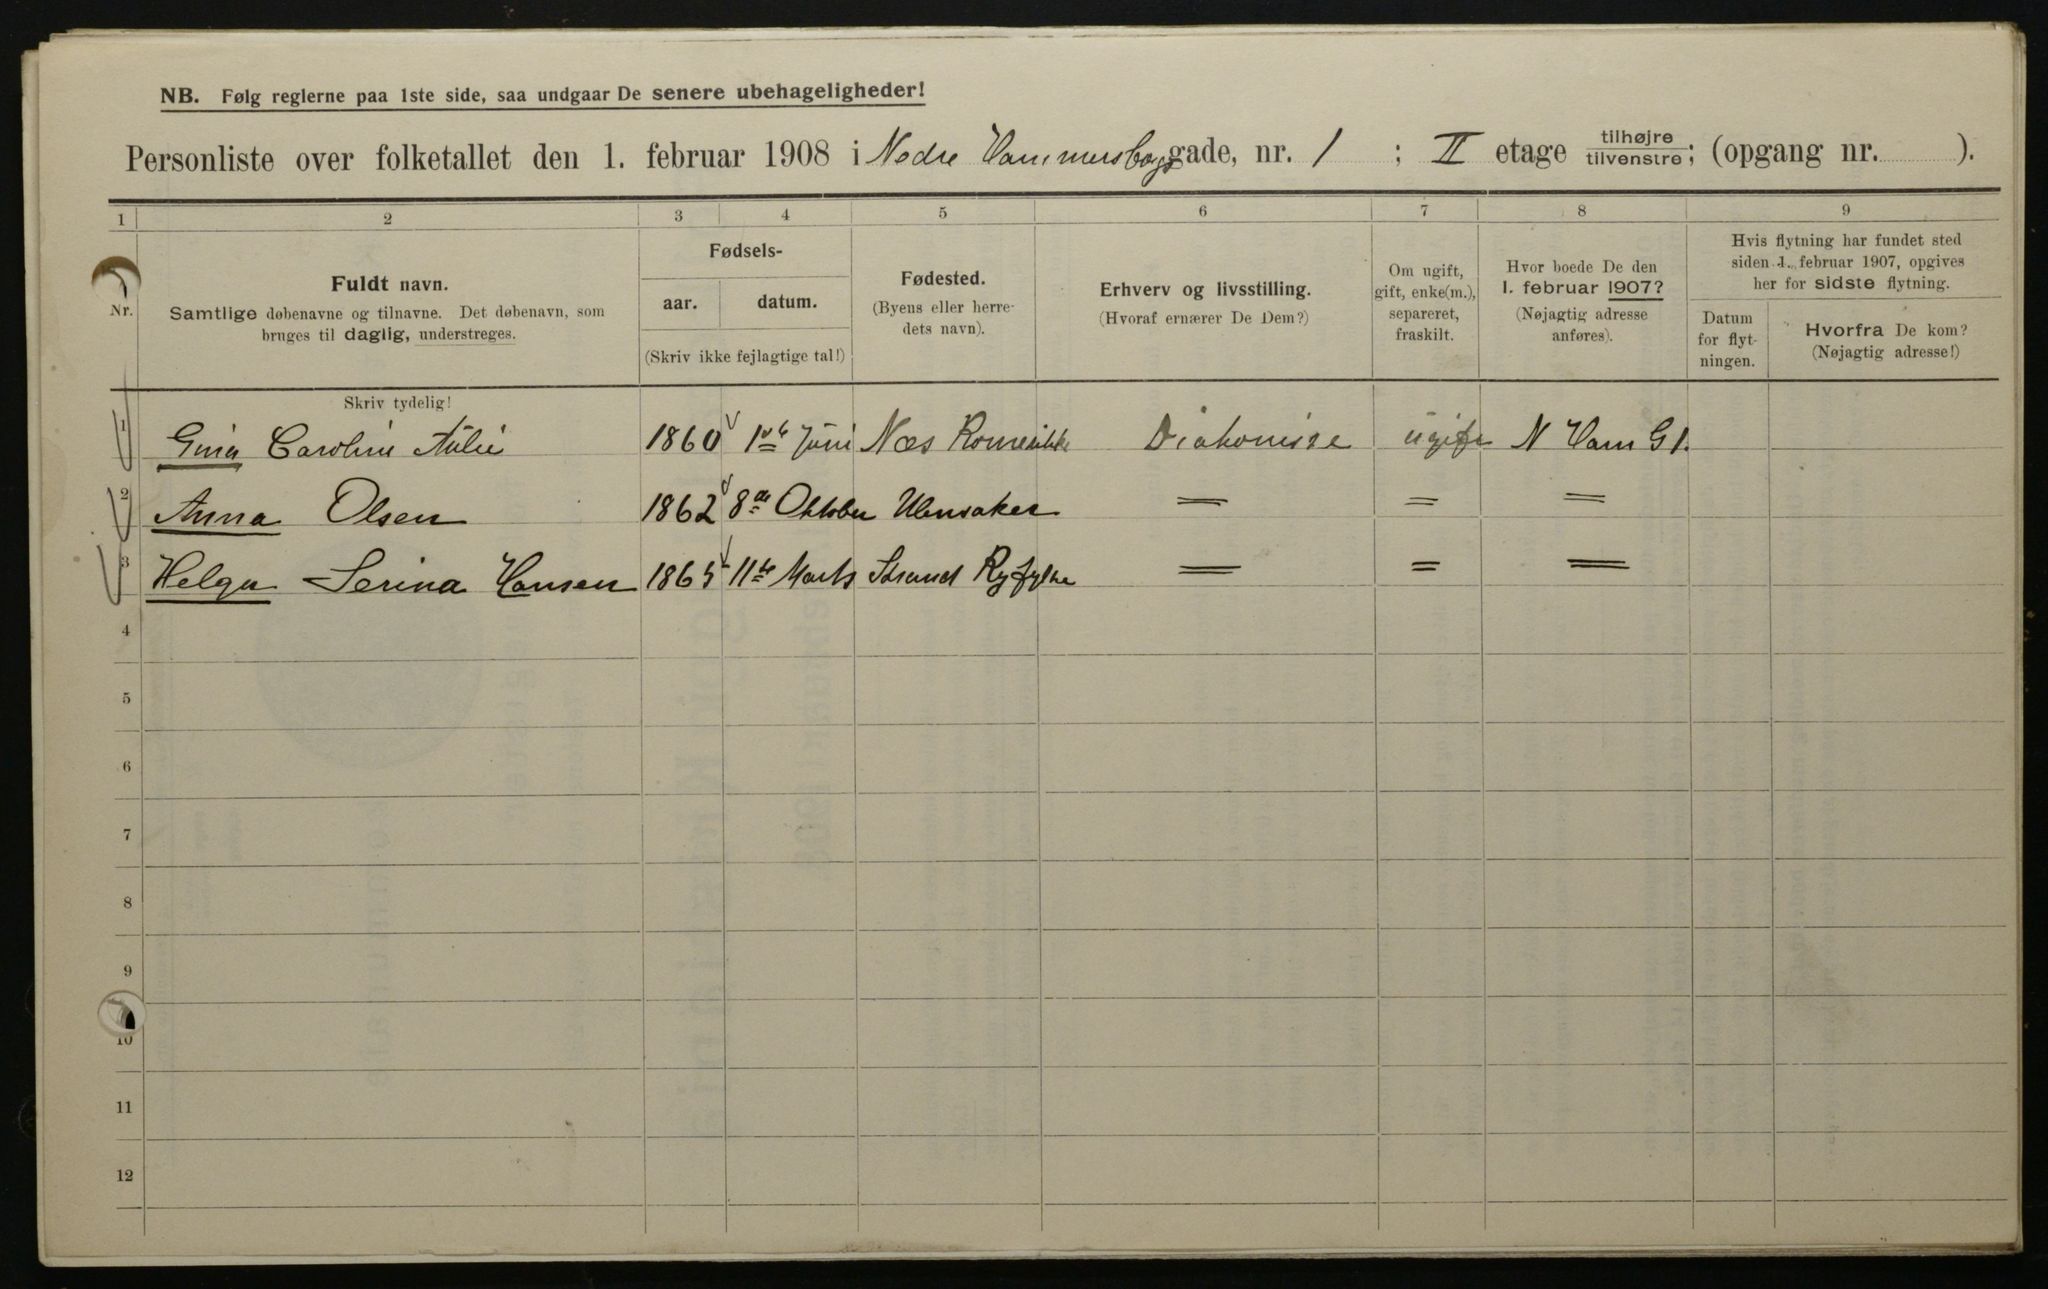 NB. Følg reglerne paa 1ste side, saa undgaar De senere ubehageligheder!
Personliste over folketallet den 1. februar 1908 i Nedre Vammersborggade, nr. 1 ; II etage tilhøjre tilvenstre; (opgang nr. ).
1 2 3 4 5 6 7 8 9
Nr.
Fuldt navn.
Samtlige døbenavne og tilnavne. Det døbenavn, som
bruges til daglig, understreges.
Skriv tydelig!
Fødsels-
aar. datum.
(Skriv ikke fejlagtige tal!)
Fødested.
(Byens eller herre-
dets navn).
Erhverv og livsstilling.
(Hvoraf ernærer De Dem?)
Om ugift,
gift, enke(m.),
separeret,
fraskilt.
Hvor boede De den
1. februar 1907?
(Nøjagtig adresse
anføres).
Hvis flytning har fundet sted
siden 1. februar 1907, opgives
her for sidste flytning.
Datum
for flyt-
ningen.
Hvorfra De kom?
(Nøjagtig adresse!)
1 Gina Caroline Aulie 1860 1ste Juni Næs Romerikke Diakonisse ugift N Vam G 1.
2 Anna Olsen 1862 8de Oktober Ullensaker = = =
3 Helga Serina Hansen 1865 11te Marts Strand Ryfylke = = =
4
5
6
7
8
9
10
11
12